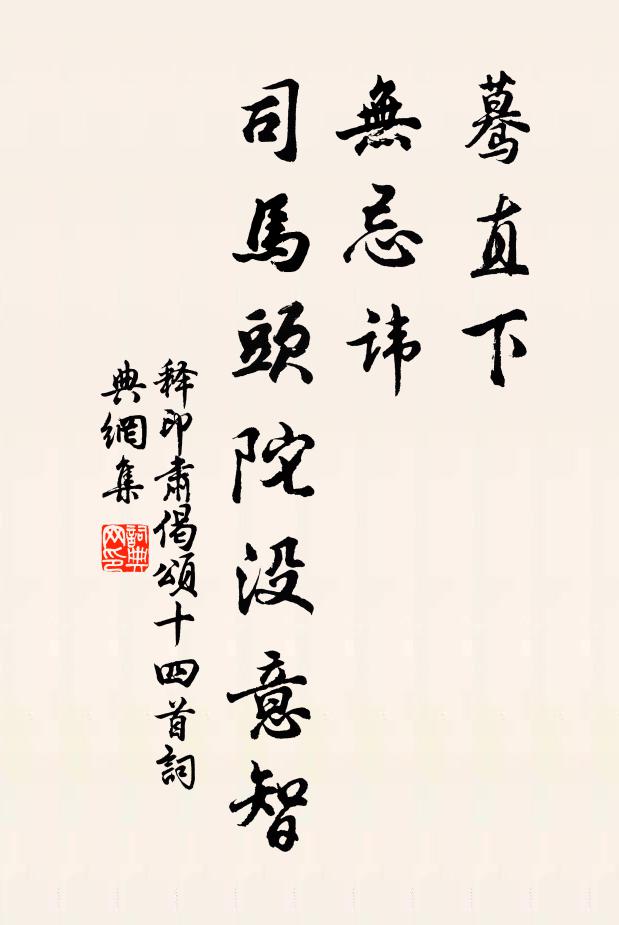 蓦直下
無忌讳
司馬頭陀没意智
释印肃偈頌十四首詞
典網集
詞典
网印